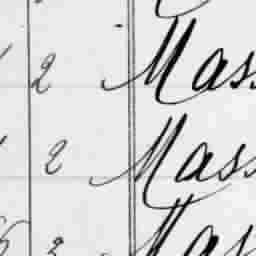 2 Mass
2 Mass
2 Mas